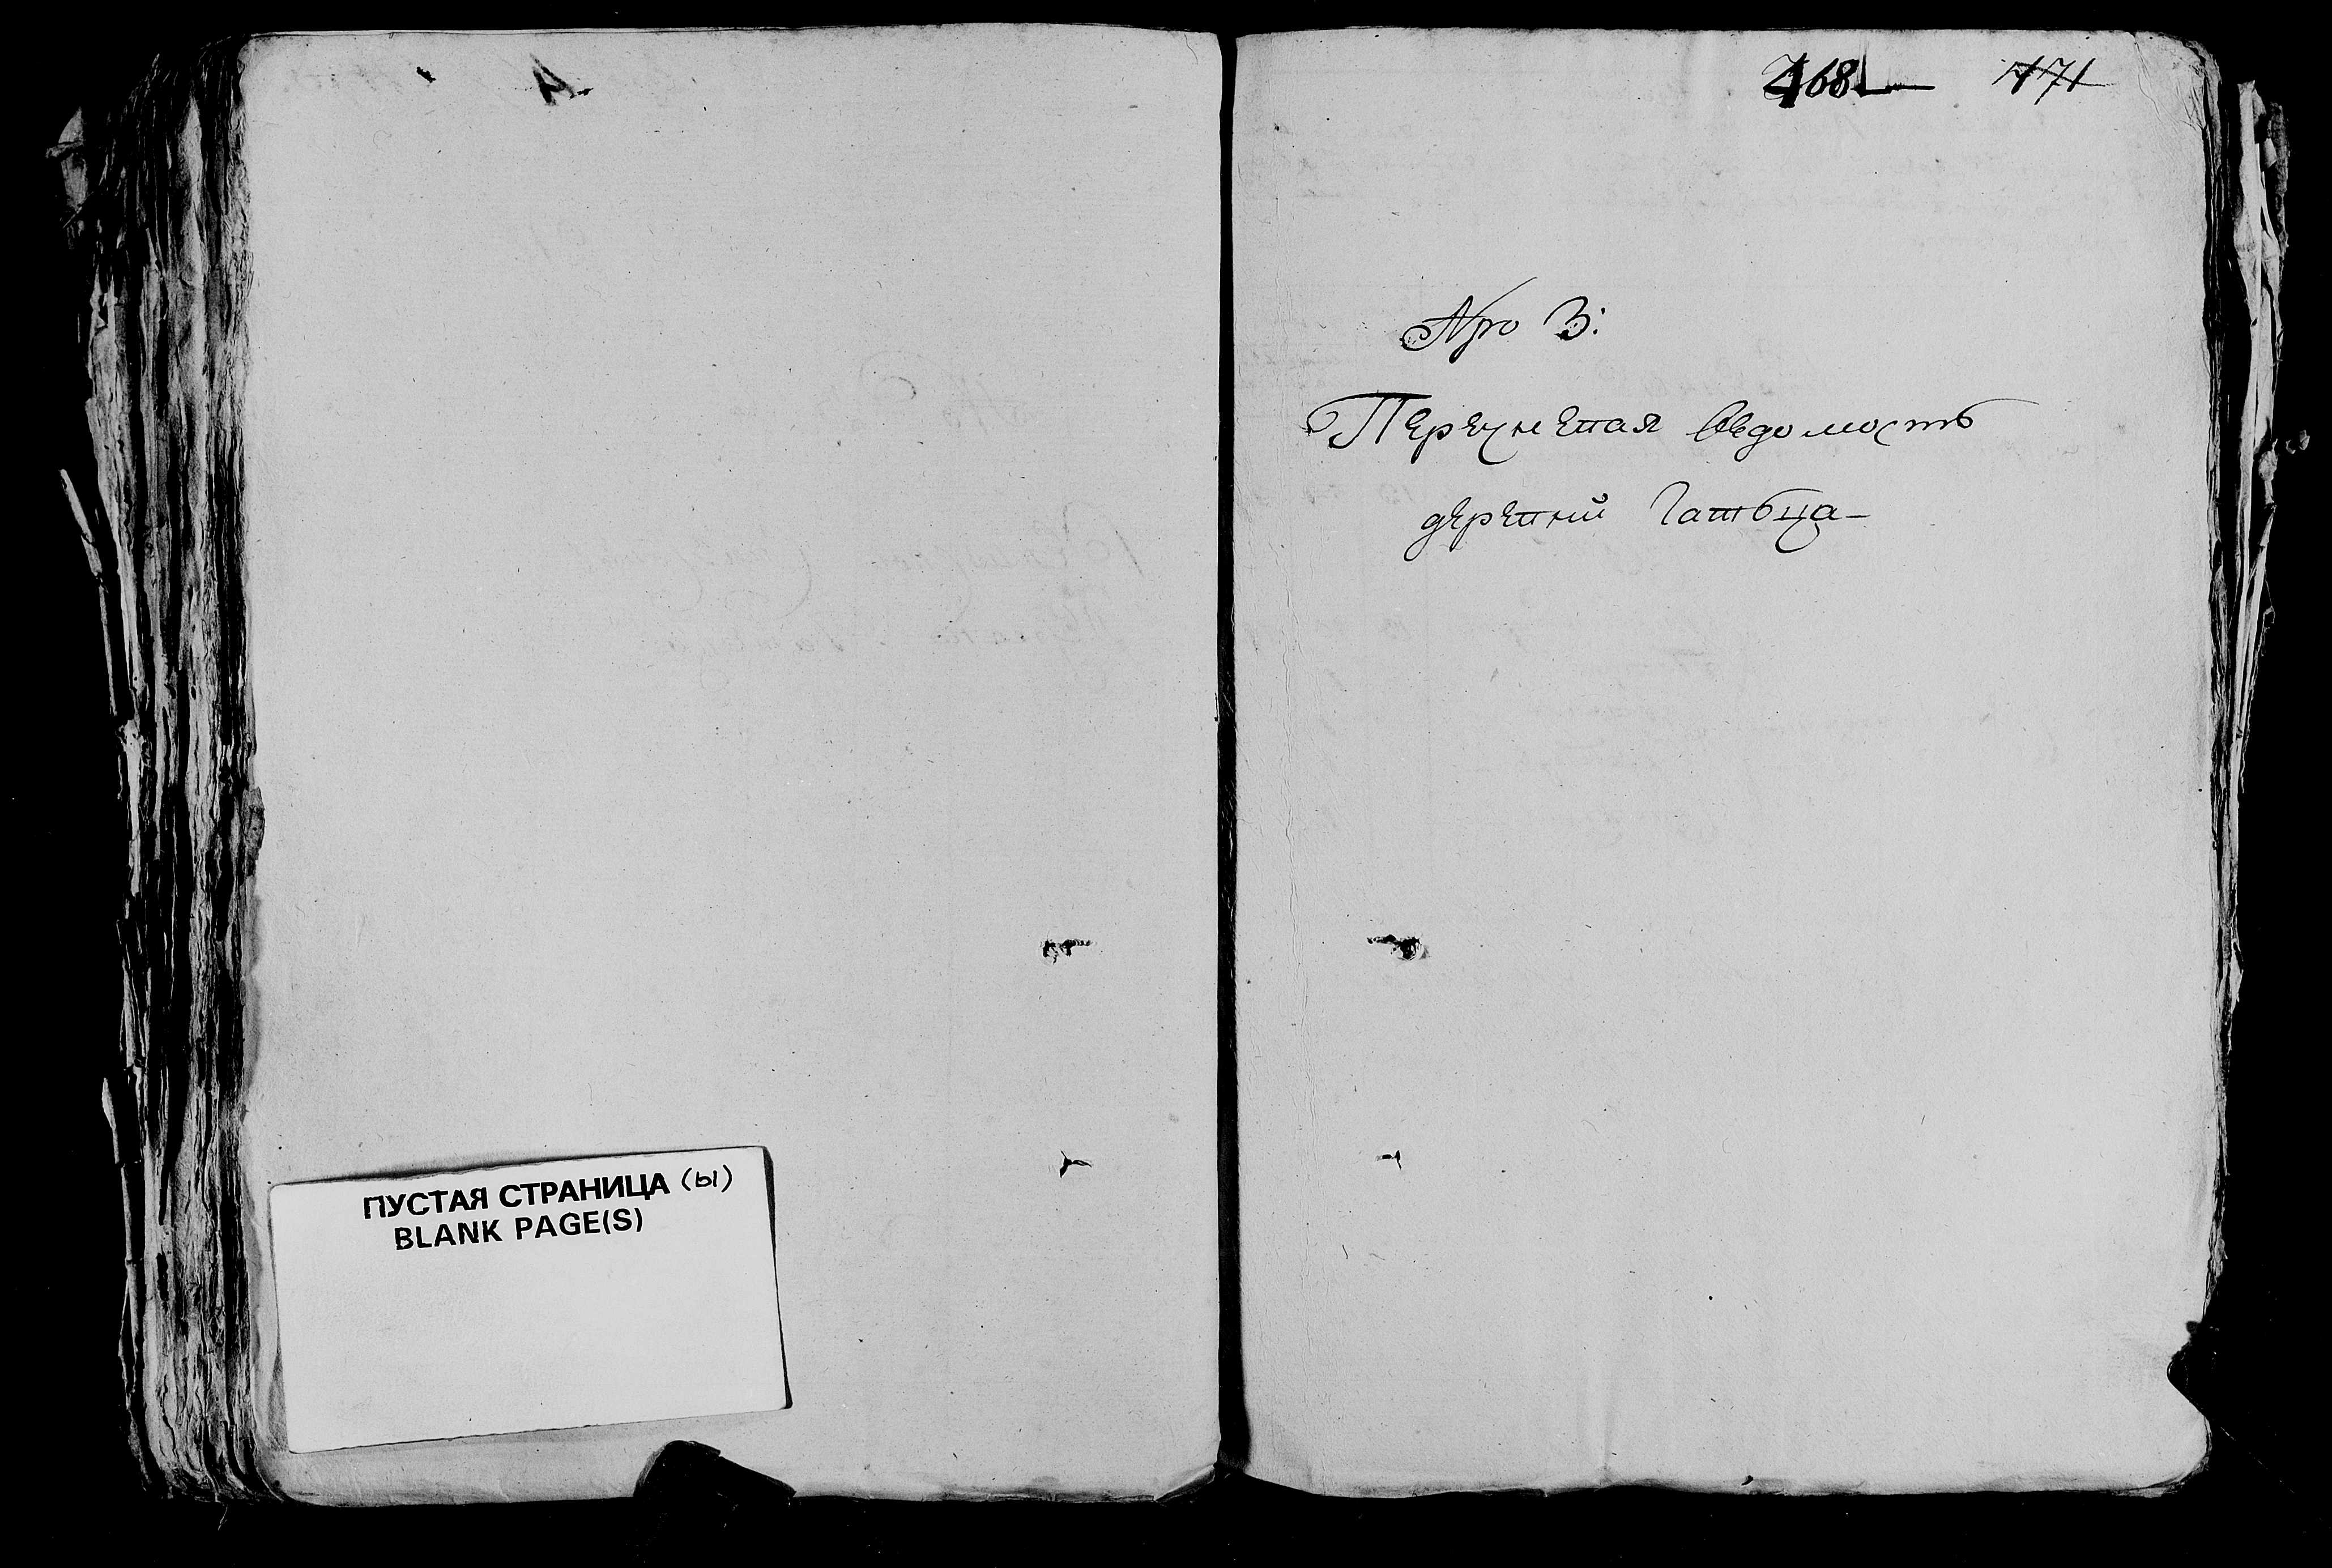 ПУСТАЯ СТРАНИЦА (ы)
BLANK PAGE(S)
468 771
Nро 3:
Перечневая ведомость
деревни Гатьца